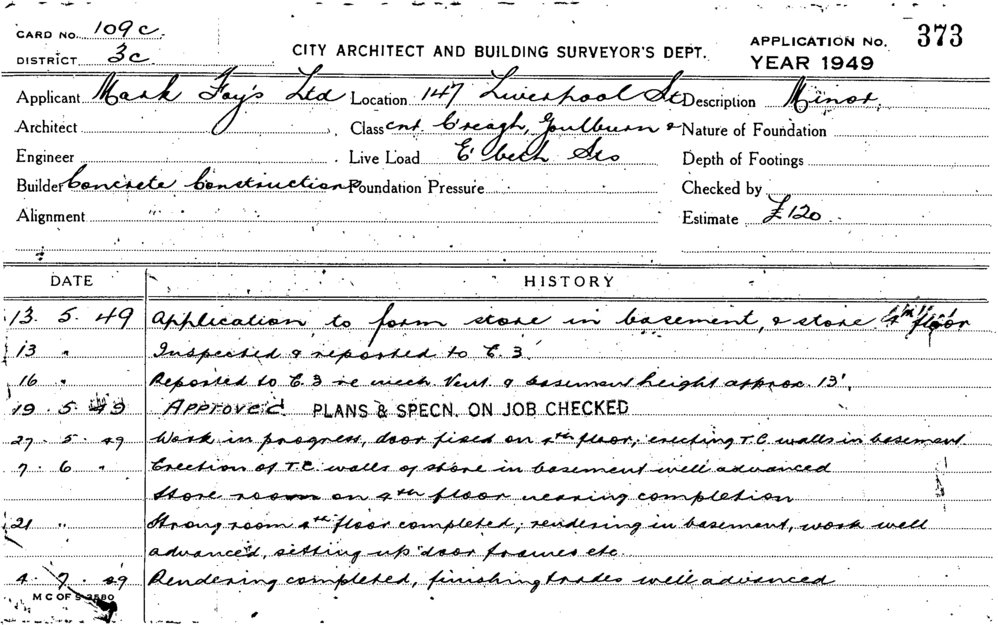 CARD No. 109c.
DISTRICT 3c
CITY ARCHITECT AND BUILDING SURVEYOR'S DEPT.
APPLICATION No. 373
YEAR 1949
Applicant Mark Foy's Ltd Location 147 Liverpool St Description Minor.
Architect Class cnr. Creagh, Goulburn & Nature of Foundation
Engineer Live Load E'beth Sts Depth of Footings
Builder Concrete Constructions Foundation Pressure Checked by
Alignment " Estimate £120
DATE HISTORY
13. 5. 49 Application to form store in basement, & store 4th floor
13 " Inspected & reported to C.3.
16 " Reported to C.3 re mech. Vent. & basement height approx. 13'.
19. 5. 49 Approved PLANS & SPECN. ON JOB CHECKED
27. 5. 49 Work in progress, door fixed on 4th floor; erecting T.C. walls in basement
7. 6 " Erection of T.C. walls of store in basement well advanced
Store room on 4th floor nearing completion
21 " Strong room 4th floor completed; rendering in basement, work well
advanced, setting up door frames etc.
4. 7. 49 Rendering completed, finishing trades well advanced
M C OF S 3580